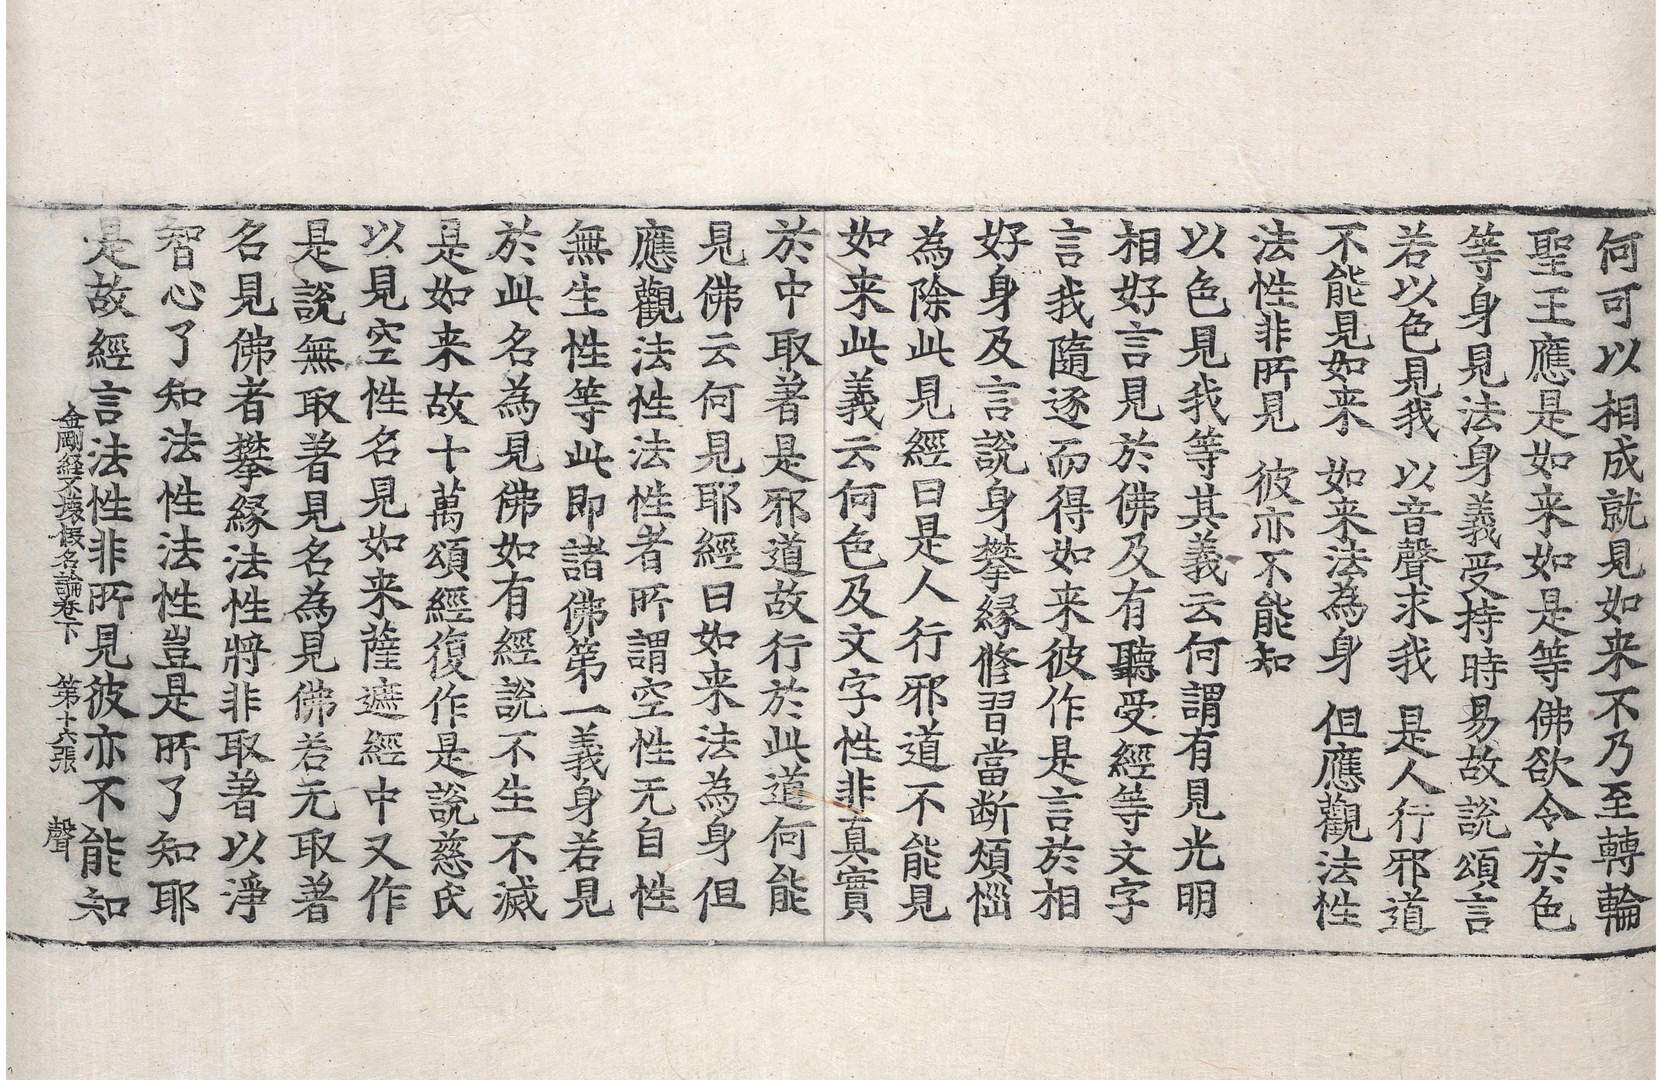 何可以相成就見如来不乃至轉輪
聖王應是如来如是等佛欲令於色
等身見法身義受持時易故說頌言
若以色見我 以音聲求我 是人行邪道
不能見如来 如来法為身 但應觀法性
法性非所見 彼亦不能知
以色見我等其義云何謂有見光明
相好言見於佛及有聽受經等文字
言我隨逐而得如来彼作是言於相
好身及言說身攀緣修習當斷煩惱
為除此見經曰是人行邪道不能見
如来此義云何色及文字性非真實
於中取著是邪道故行於此道何能
見佛云何見耶經曰如来法為身但
應觀法性法性者所謂空性无自性
無生性等此即諸佛第一義身若見
於此名為見佛如有經說不生不滅
是如来故十萬頌經復作是說慈氏
以見空性名見如来薩遮經中又作
是說無取著見名為見佛若无取著
名見佛者攀緣法性將非取著以淨
智心了知法性法性豈是所了知耶
是故經言法性非所見彼亦不能知
金剛經又壞假名論卷下 第十六張 聲